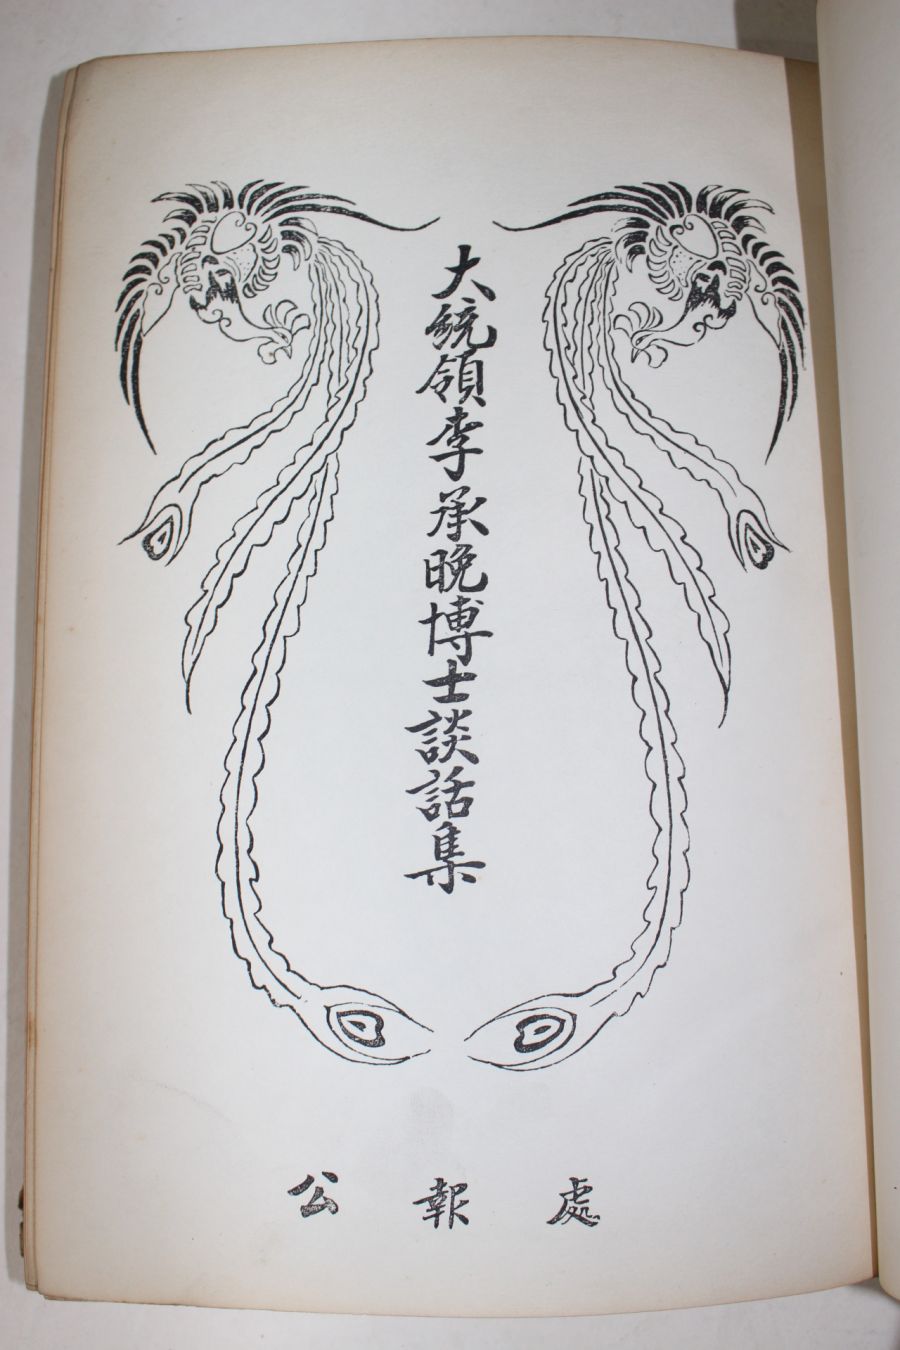 大統領李承晩博士談話集
公報處